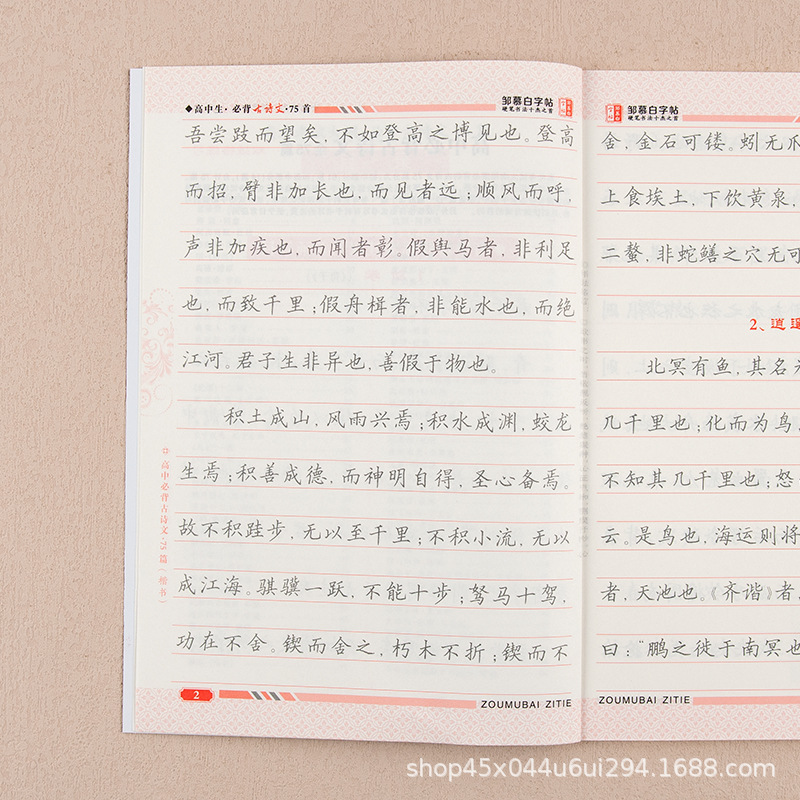 ◆高中生·必背古诗文·75首
邹慕白字帖
硬笔书法十杰之首
吾尝跂而望矣，不如登高之博见也。登高
而招，臂非加长也，而见者远；顺风而呼，
声非加疾也，而闻者彰。假舆马者，非利足
也，而致千里；假舟楫者，非能水也，而绝
江河。君子生非异也，善假于物也。
积土成山，风雨兴焉；积水成渊，蛟龙
生焉；积善成德，而神明自得，圣心备焉。
故不积跬步，无以至千里；不积小流，无以
成江海。骐骥一跃，不能十步；驽马十驾，
功在不舍。锲而舍之，朽木不折；锲而不
高中必背古诗文·75篇（楷书）
2
ZOUMUBAI ZITIE
邹慕白字帖
硬笔书法十杰之首
舍，金石可镂。蚓无爪
上食埃土，下饮黄泉，
二螯，非蛇鳝之穴无可
2、逍遥
北冥有鱼，其名为
几千里也；化而为鸟，
不知其几千里也；怒
云。是鸟也，海运则将
者，天池也。《齐谐》者，
曰：“鹏之徙于南冥也
ZOUMUBAI ZITIE
shop45x044u6ui294.1688.com